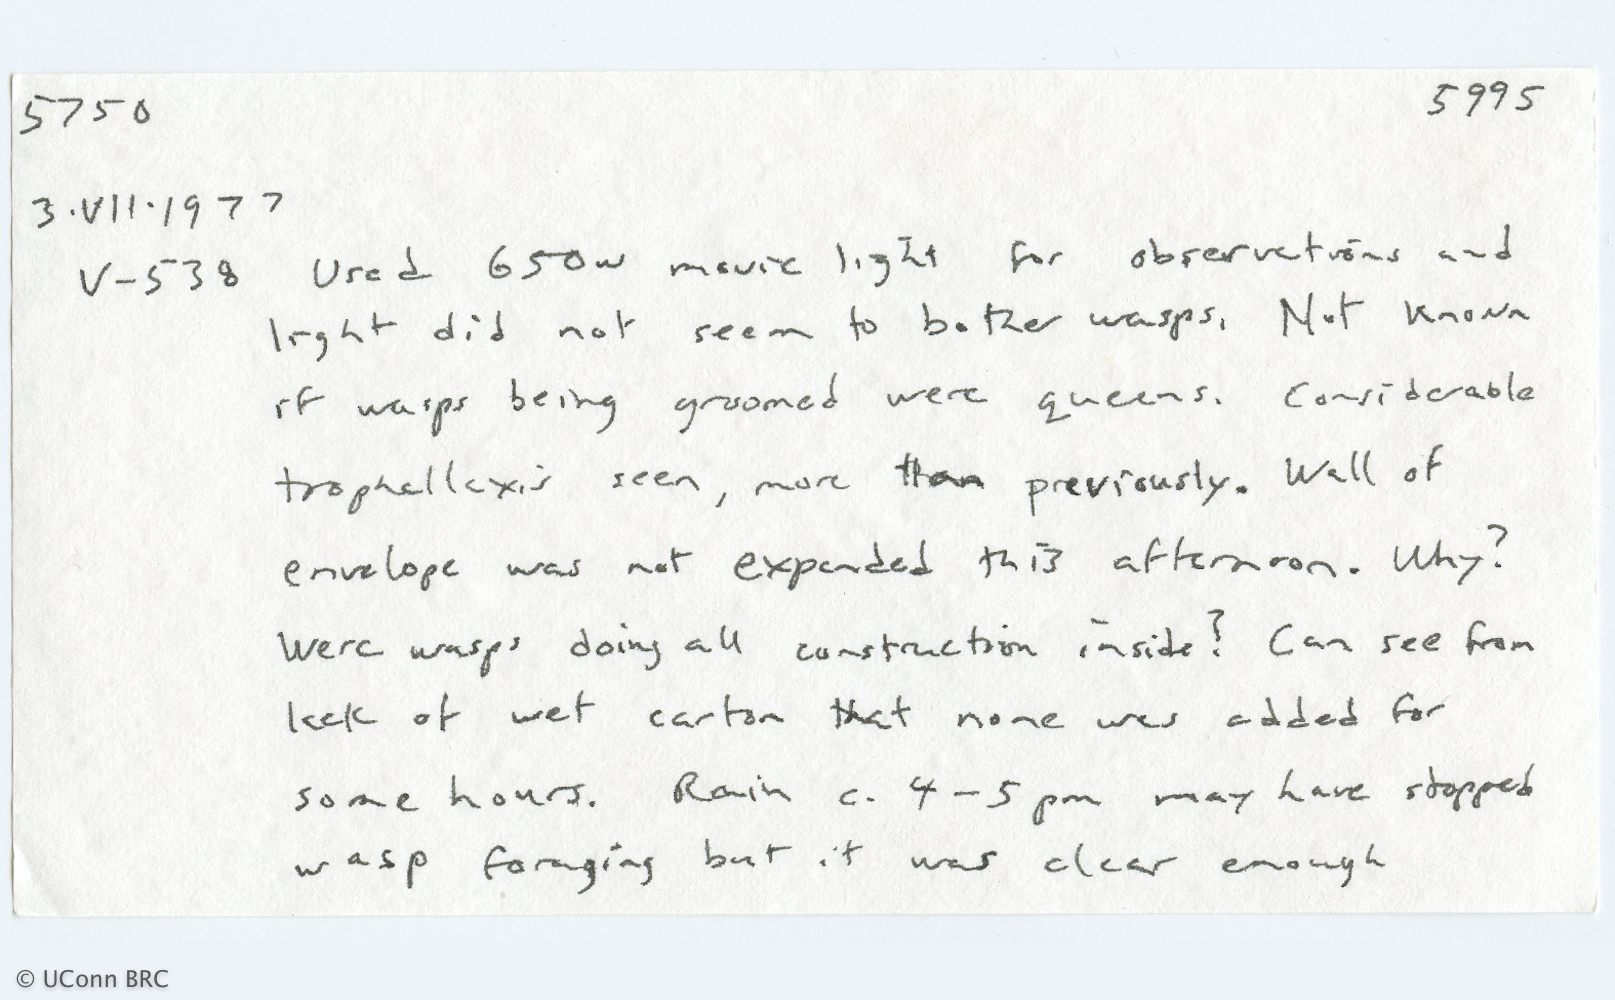 5750 5995
3.VII.1977
V-538 Used 650w movie light for observations and
light did not seem to bother wasps. Not known
if wasps being groomed were queens. Considerable
trophallaxis seen, more than previously. Wall of
envelope was not expanded this afternoon. Why?
Were wasps doing all construction inside? Can see from
lack of wet carton that none was added for
some hours. Rain c. 4-5 pm may have stopped
wasp foraging but it was clear enough
© UConn BRC